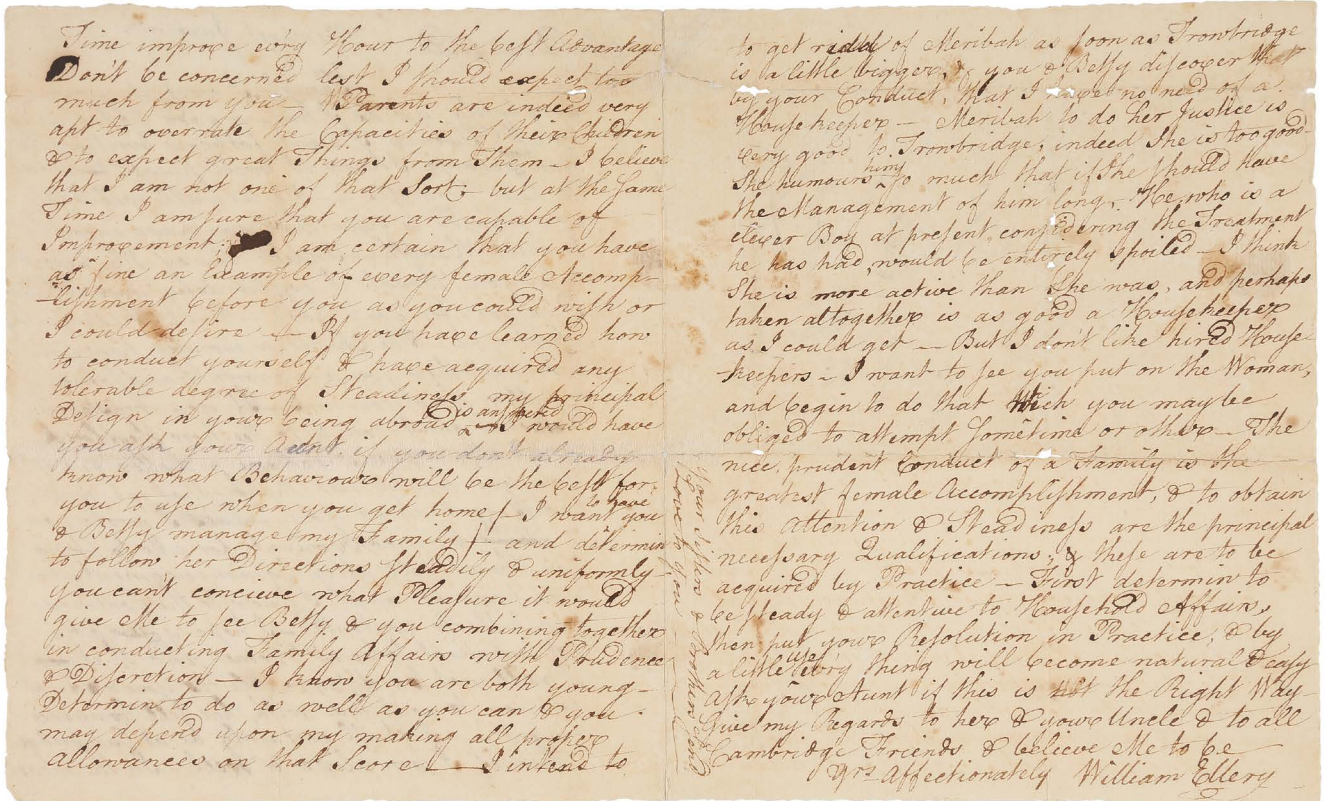 Time improve evry Hour to the best Advantage
Don't be concerned lest I should expect too
much from you — Parents are indeed very
apt to overrate the Capacities of their Children
& to expect great Things from Them — I believe
that I am not one of that Sort; but at the same
Time I am sure that you are capable of
Improvement I am certain that you have
as fine an Example of every female Accomp-
-lishment before you as you could wish or
I could desire — If you have learned how
to conduct yourself & have acquired any
tolerable degree of Steadiness, my principal
Design in your being abroad is answered — I would have
you ask your Aunt if you don't already
know what Behaviour will be the best for
you to use when you get home / I want to have you
& Betsy manage my Family / — and determin
to follow her Directions steadily & uniformly —
you can't concieve what Pleasure it would
give Me to see Betsy & you combining together
in conducting Family Affairs with Prudence
& Discretion — I know you are both young —
Determin to do as well as you can & you
may depend upon my making all proper
allowances on that Score — I intend to
to get ridd of Meribah as soon as Trowbridge
is a little bigger, & you & Betsy discover that
by your Conduct, that I have no need of a
Housekeeper — Meribah to do her Justice is
very good to Trowbridge; indeed She is too good —
She humours him so much that if She should have
the Management of him long, He, who is a
clever Boy at present considering the Treatment
he has had, would be entirely spoiled — I think
She is more active than She was, and perhaps
taken altogether is as good a Housekeeper
as I could get — But I don't like hired House-
-keepers — I want to see you put on the Woman,
and begin to do that which you may be
obliged to attempt sometime or other — The
nice, prudent Conduct of a Family is the
greatest female Accomplishment, & to obtain
this Attention & Steadiness are the principal
necessary Qualifications; & these are to be
acquired by Practice — First determin to
be steady & attentive to Household Affairs,
then put your Resolution in Practice, & by
a little use every thing will become natural & easy
Ask your Aunt if this is not the Right Way —
Give my Regards to her & your Uncle & to all
Cambridge Friends & believe Me to be
yrs Affectionately William Ellery
Your Sisters & Brothers send
Love to you